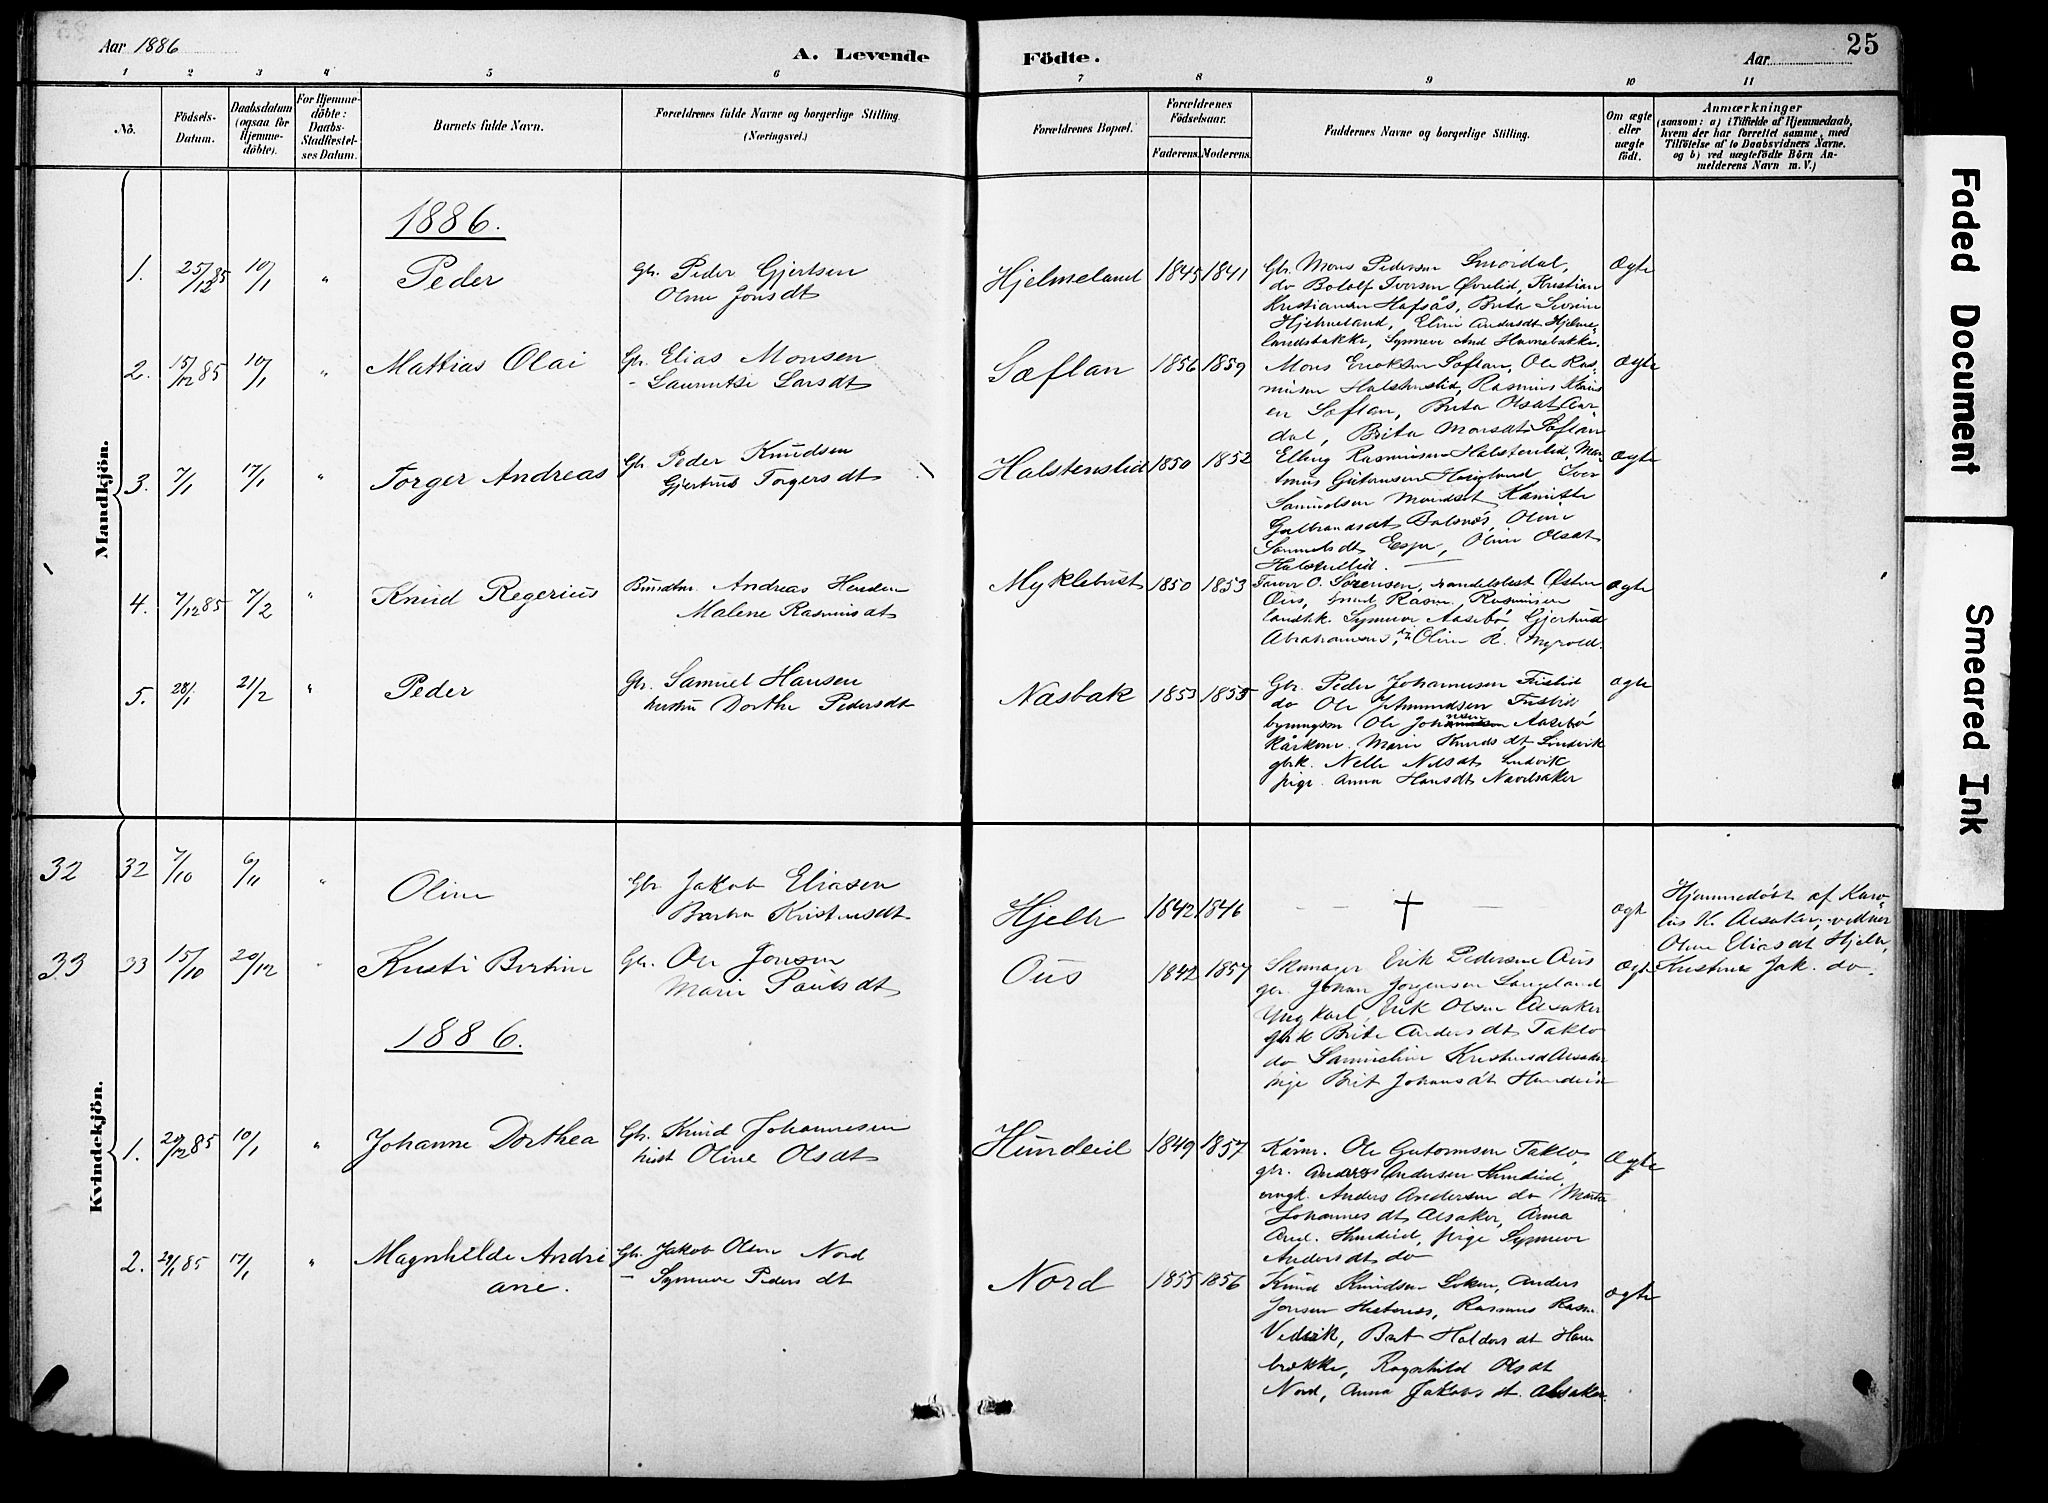 Aar 1886
A. Levende Födte.
Aar
25
1 2 3 4 5 6 7 8 9 10 11
No.
Födsels-
Datum.
Daabsdatum
(ogsaa for
Hjemme-
döbte).
For Hjemme-
döbte:
Daabs-
Stadfæstel-
ses Datum.
Barnets fulde Navn.
Forældrenes fulde Navne og borgerlige Stilling.
(Næringsvei.)
Forældrenes Bopæl.
Forældrenes
Födselsaar.
Faderens. Moderens.
Faddernes Navne og borgerlige Stilling.
Om ægte
eller
uægte
födt.
Anmærkninger
(saasom: a) i Tilfælde af Hjemmedaab,
hvem der har forrettet samme, med
Tilföielse af to Daabsvidners Navne,
og b) ved uægtefödte Börn An-
melderens Navn m. V.)
Mandkjön.
1886.
1. 25/12 85 10/1 " Peder
Gbr. Peder Gjertsen
Oline Jonsdt
Hjelmeland 1845 1841
Gbr. Mons Pedersen Smördal,
do Botolf Iversen Övrelid, Kristian
Kristiansen Hafsås, Brita Severine
Hjelmeland, Eline Andersdt Hjelme-
landsbakke, Synneve And Havnebakke.
Ægte
2. 15/12 85 10/1 " Mattias Olai
Gbr. Elias Monsen
- Larsdt
Sæflan 1856 1859
Mons Eriksen Sæflan, Ole Ras-
musen Halstenslid, Rasmus Mons
en Sæflan, Brita Olsdt Aar-
dal, Brita Monsdt Sæflan
Ægte
3. 7/1 17/1 " Torger Andreas
Gbr. Peder Knudsen
Gjertrud Torgersdt
Halstenslid 1850 1852
Elling Rasmusen Halstenslid,
Gutormsen Iver
Samuelsen
Gulbrandsdt Oline
Samuelsdt Espe, Oline Olsdt
Halstenslid.
Ægte
4. 7/12 85 7/2 " Knud Regerius
Andreas Henden
Malene Rasmusdt
Myklebust 1850 1853
O. Sörensen, handelsbest Östen
Ous, Rasm. Rasmusen
Synneve Aasebö Gjertrud
Abrahamsens, Oline R. Myrold.
Ægte
5. 28/1 21/2 " Peder
Gbr. Samuel Hansen
hustru Dorthe Pedersdt
Næsbak 1853 1855
Gbr. Peder Johannesen
do Ole Amundsen
Ole Johannesen Aasebö
Kårkone. Marie Knudsdt Lindvik
gbk. Nille Nilsdt Lindvik
pige. Anna Hansdt Navelsaker
ægte
Kvindekjön.
32 32 7/10 6/11 " Oline
Gbr. Jakob Eliasen
Barbra Kristensdt
Hjelle 1842 1846
- - † -
ægt
Hjemmedöbt af Karo-
lus K. Alsaker; vidner
Oline Eliasdt Hjelle,
Kristine Jak. do.
33 33 15/10 20/12 " Kristi Bertine
Gbr. Ole Jonsen
Marie Paulsdt
Ous 1842 1857
Skomager Erik Pedersen Ous
gbr. Johan Jörgensen Langeland
Ungkarl, Erik Olsen Alsaker
gbk Brite Andersdt Taklo
do Samueline Kristensd Alsaker
pige Brit Johansdt Hundeide
Ægt
1886.
1. 20/12 85 10/1 " Johanne Dorthea
Gbr. Knud Johannesen
hust Oline Olsdt
Hundeid 1849 1857
Kårm. Ole Gutormsen Taklo,
gbr. Anders Andersen Hundeid,
ungk. Anders Andersen do Marta
Johannesdt Alsaker, Anna
And. Hundeid, pige Synneve
Andersdt do
Ægte
2. 29/1 85 17/1 " Magnhilde Andri
ane.
Gbr. Jakob Olsen Nord
- Synneve Pedersdt
Nord 1855 1856
Knud Knudsen Loken, Anders
Jonsen Hestenes, Rasmus Rasm.
Vedvik, Brit Haldorsdt Hav
brække, Ragnhild Olsdt
Nord, Anna Jakobsdt. Alsaker.
ægte
Faded Document
Smeared Ink